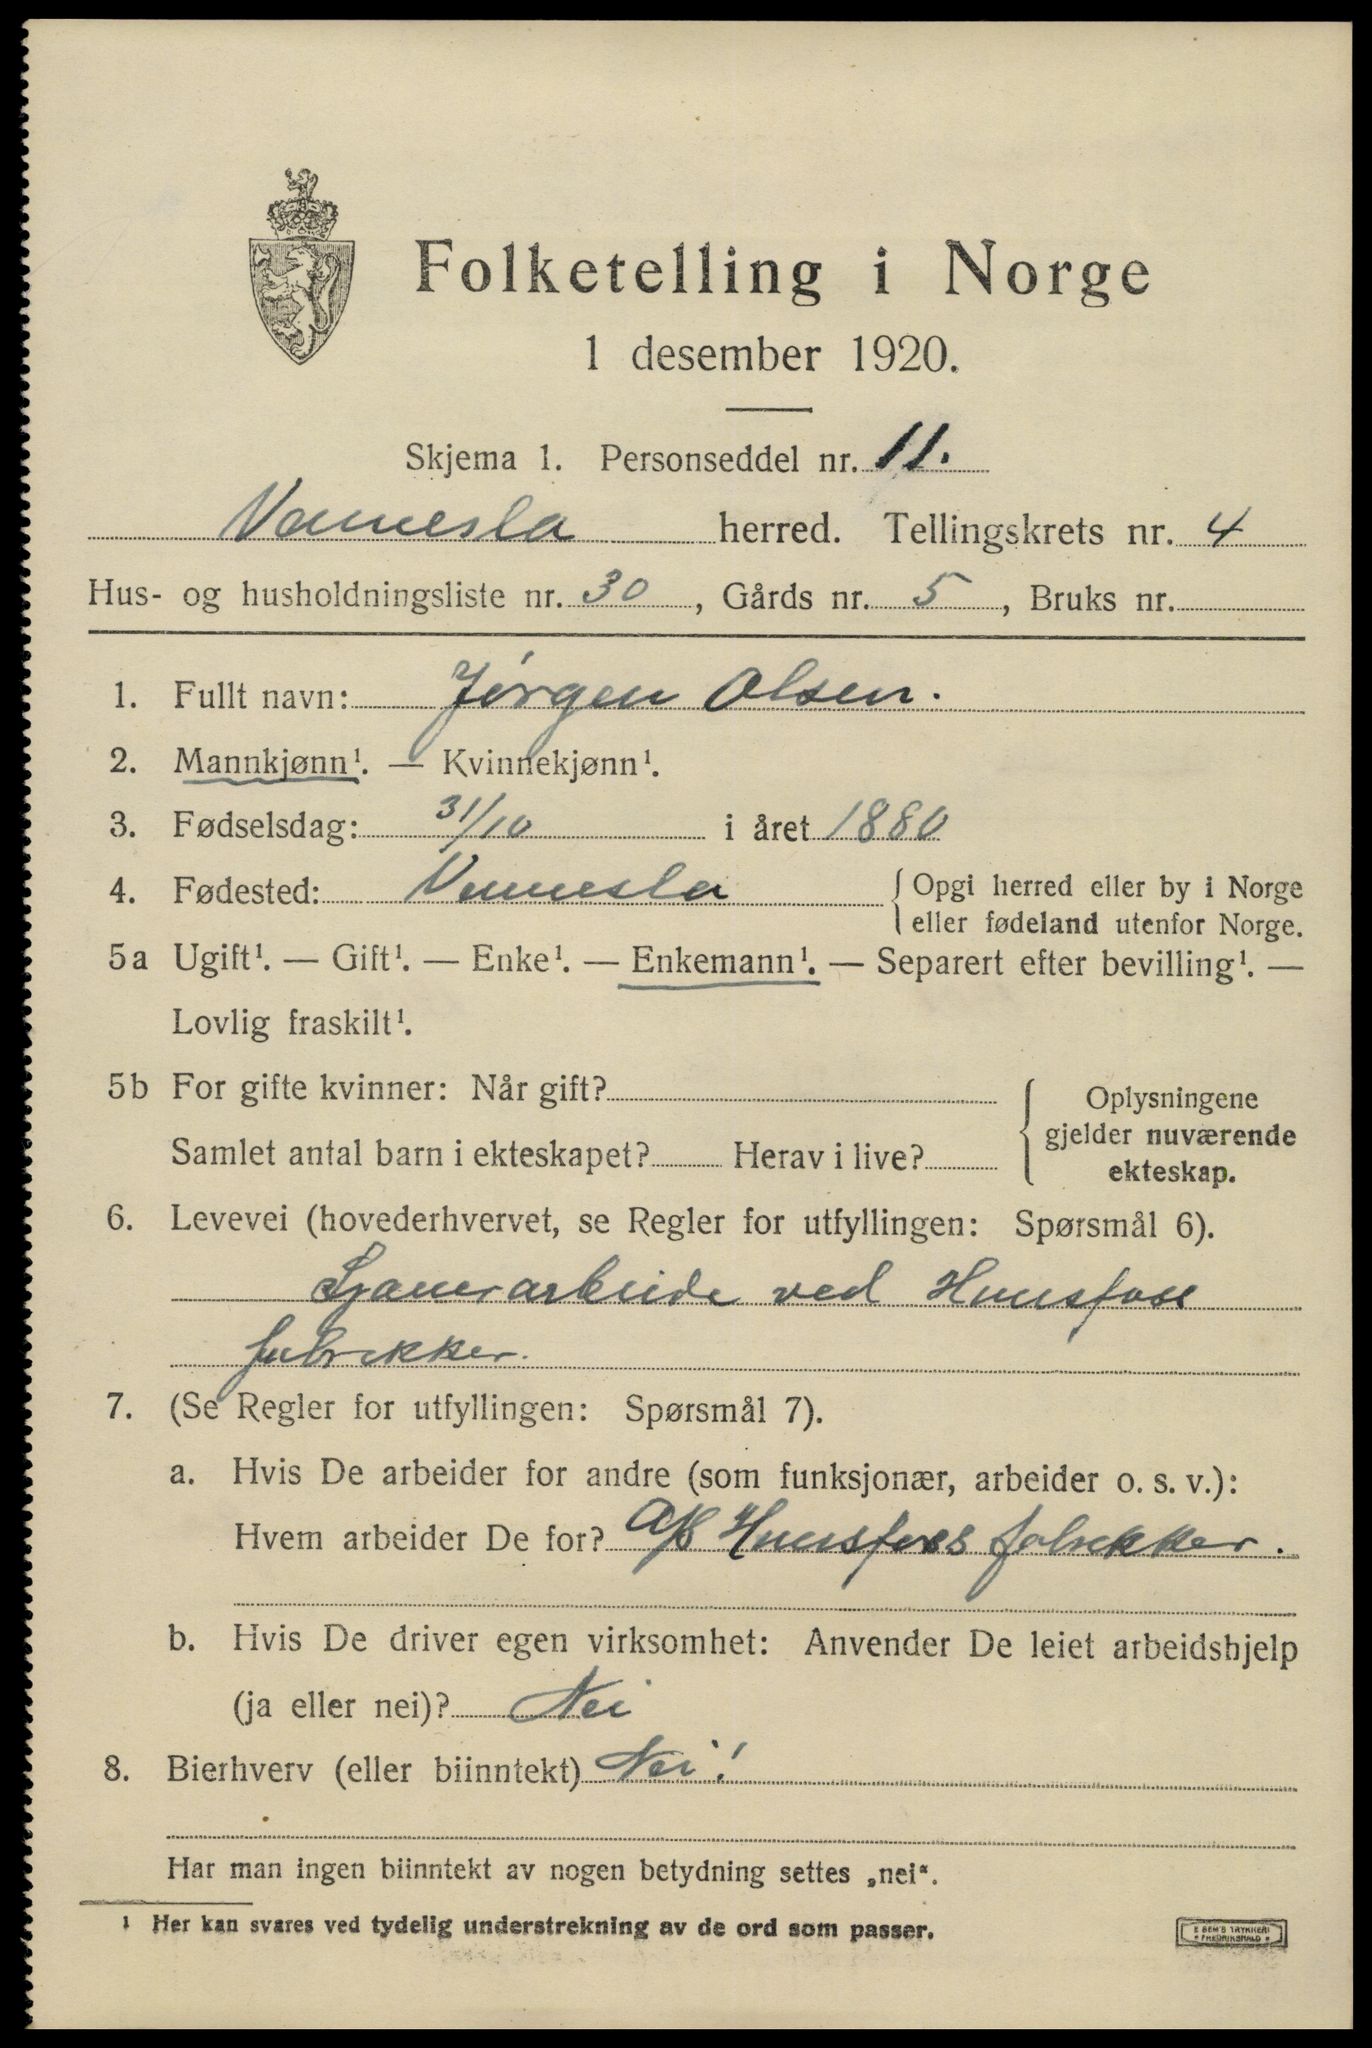 Folketelling i Norge
1 desember 1920.
Skjema 1. Personseddel nr. 11.
Vennesla herred. Tellingskrets nr. 4
Hus- og husholdningsliste nr. 30, Gårds nr. 5, Bruks nr.
1. Fullt navn: Jørgen Olsen.
2. Mannkjønn¹. — Kvinnekjønn¹.
3. Fødselsdag: 31/10 i året 1880
4. Fødested: Vennesla { Opgi herred eller by i Norge
eller fødeland utenfor Norge.
5a Ugift¹. — Gift¹. — Enke¹. — Enkemann¹. — Separert efter bevilling¹. —
Lovlig fraskilt¹.
5b For gifte kvinner: Når gift?
Samlet antal barn i ekteskapet? Herav i live?
{ Oplysningene
gjelder nuværende
ekteskap.
6. Levevei (hovederhvervet, se Regler for utfyllingen: Spørsmål 6).
ved Hunsfoss
fabrikker.
7. (Se Regler for utfyllingen: Spørsmål 7).
a. Hvis De arbeider for andre (som funksjonær, arbeider o. s. v.):
Hvem arbeider De for? A/S Hunsfoss fabrikker.
b. Hvis De driver egen virksomhet: Anvender De leiet arbeidshjelp
(ja eller nei)? Nei
8. Bierhverv (eller biinntekt) Nei!
Har man ingen biinntekt av nogen betydning settes „nei“.
¹ Her kan svares ved tydelig understrekning av de ord som passer.
E SEM'S TRYKKERI
FREDRIKSHALD